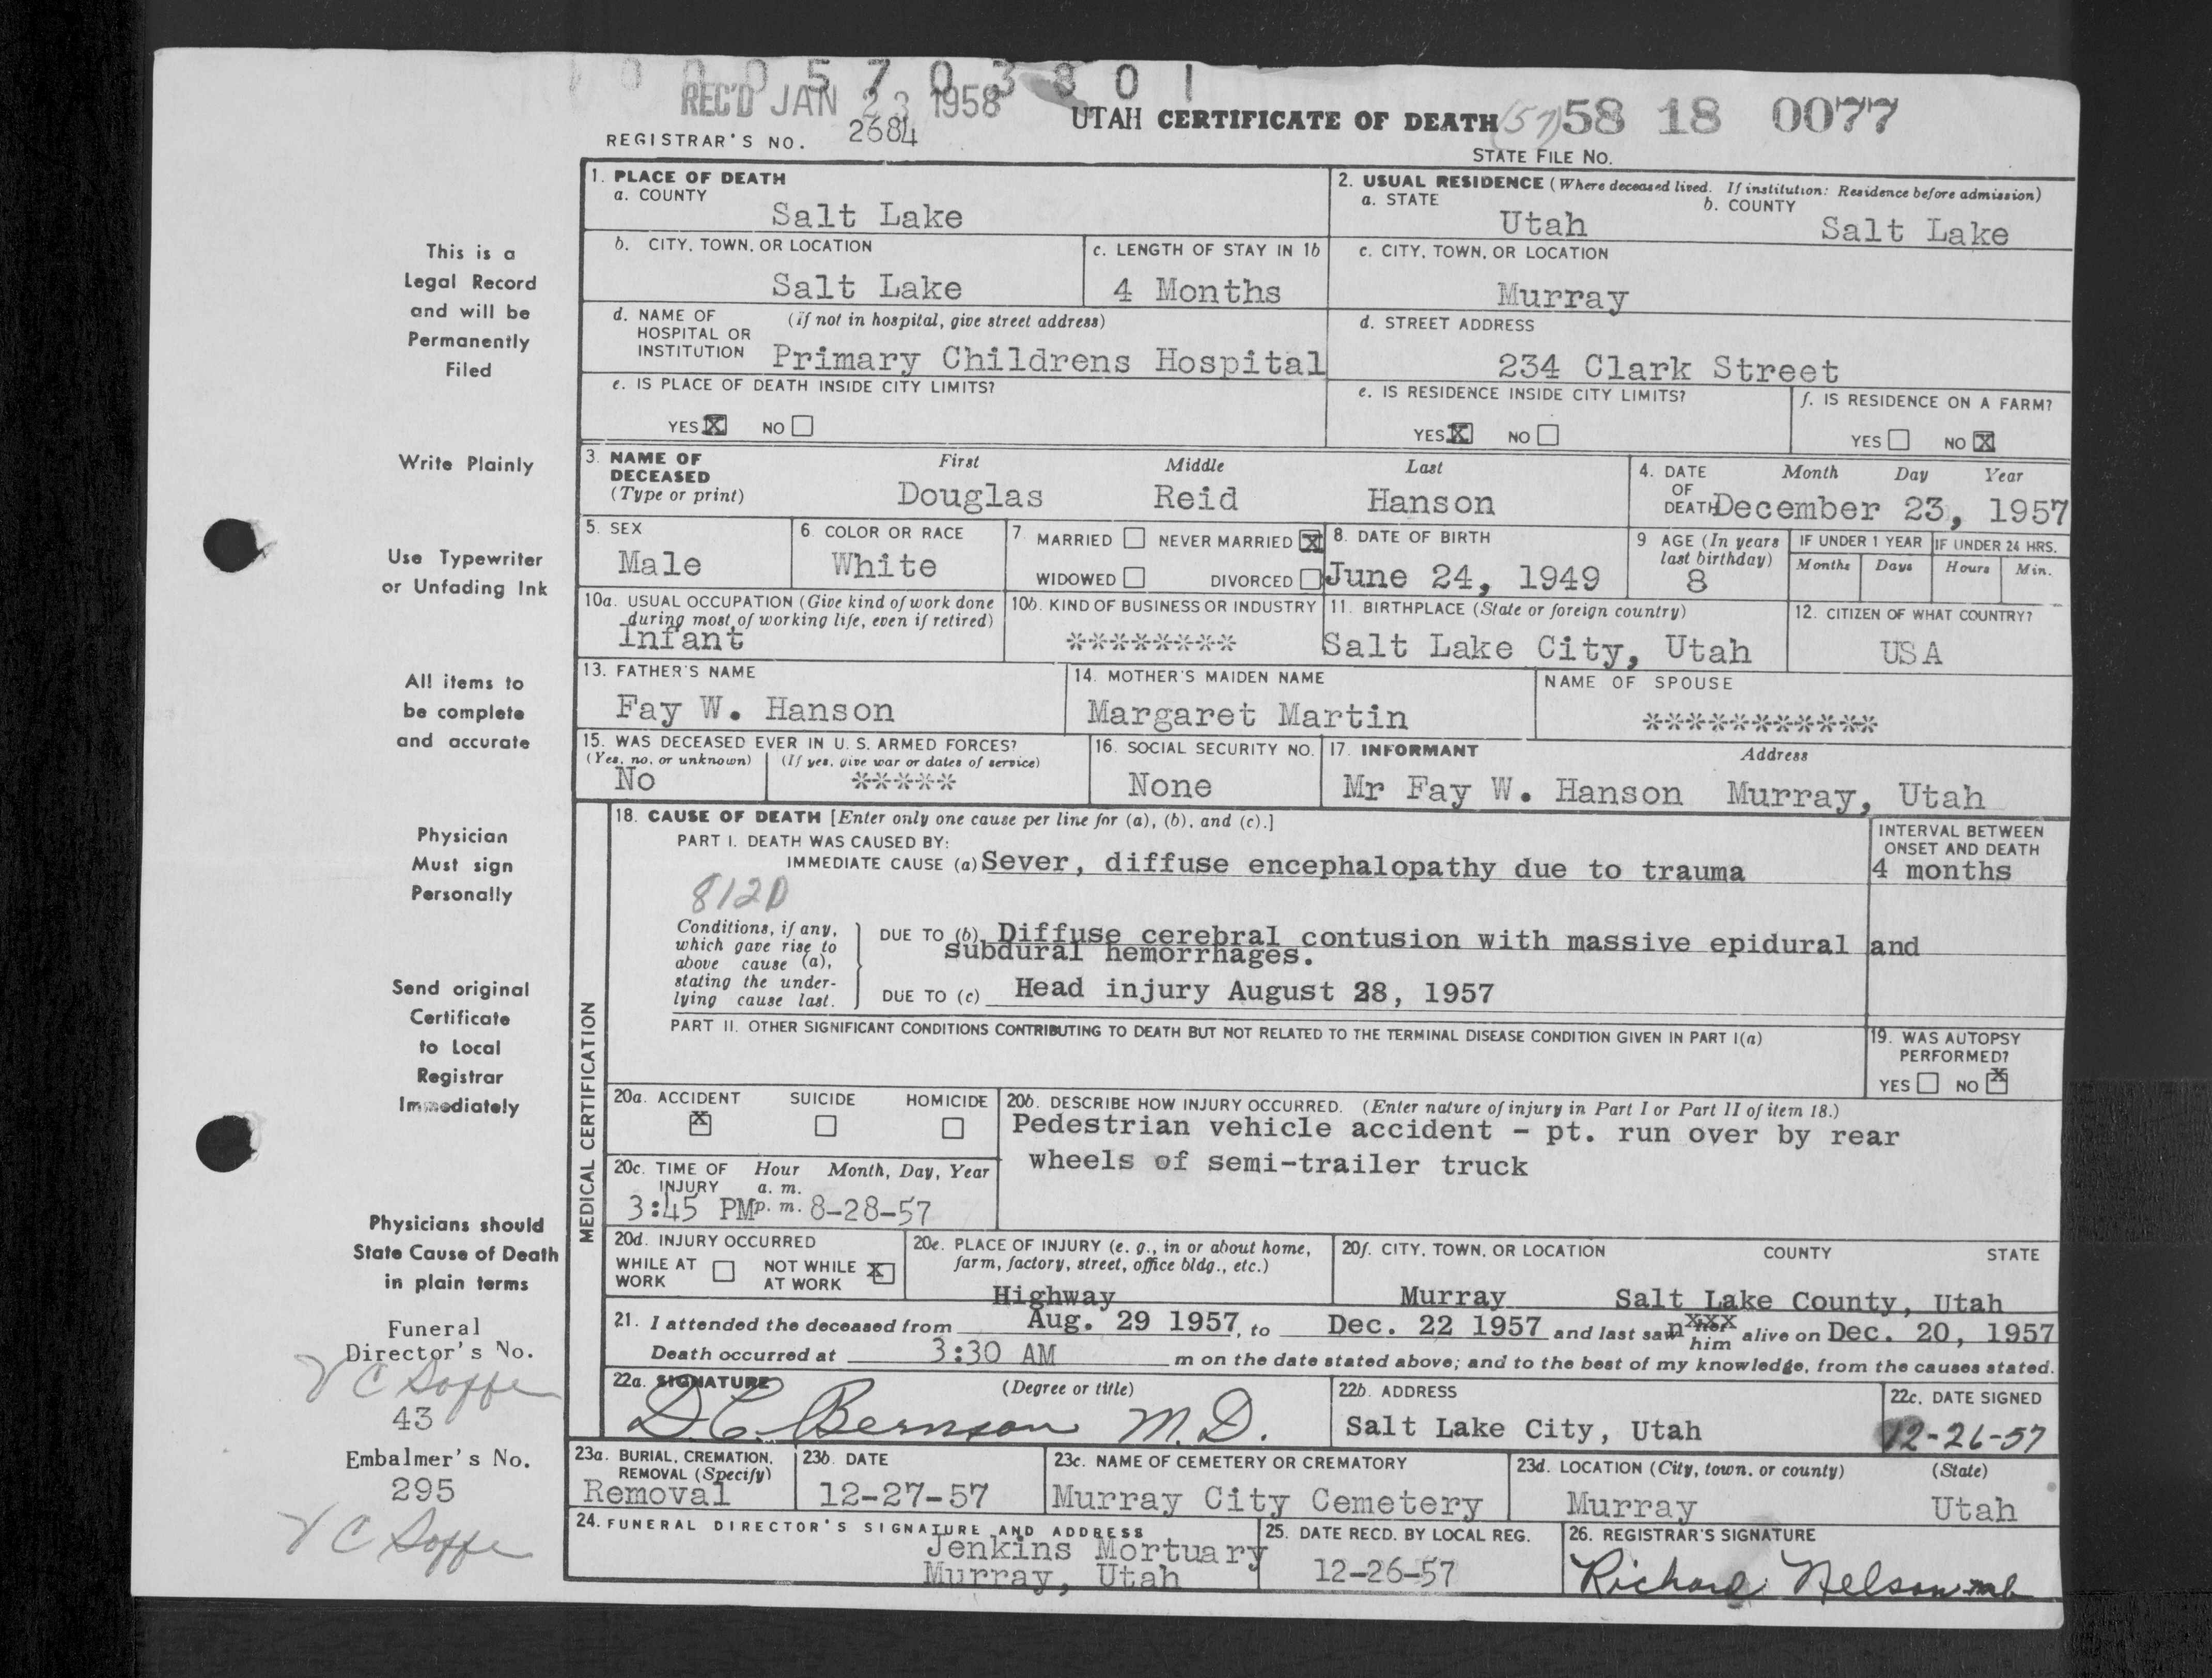 1 0 0 0 5 7 0 3 8 0 1
REC'D JAN 23 1958
UTAH CERTIFICATE OF DEATH (57) 58 18 0077
REGISTRAR'S NO. 2684
STATE FILE NO.
This is a
Legal Record
and will be
Permanently
Filed
Write Plainly
Use Typewriter
or Unfading Ink
All items to
be complete
and accurate
Physician
Must sign
Personally
Send original
Certificate
to Local
Registrar
Immediately
Physicians should
State Cause of Death
in plain terms
Funeral
Director's No.
V C Soffe
43
Embalmer's No.
295
V C Soffe
1. PLACE OF DEATH
a. COUNTY
Salt Lake
2. USUAL RESIDENCE (Where deceased lived. If institution: Residence before admission)
a. STATE b. COUNTY
Utah Salt Lake
b. CITY, TOWN, OR LOCATION
Salt Lake
c. LENGTH OF STAY IN 1b
4 Months
c. CITY, TOWN, OR LOCATION
Murray
d. NAME OF (If not in hospital, give street address)
HOSPITAL OR
INSTITUTION Primary Childrens Hospital
d. STREET ADDRESS
234 Clark Street
e. IS PLACE OF DEATH INSIDE CITY LIMITS?
YES X NO
e. IS RESIDENCE INSIDE CITY LIMITS?
YES X NO
f. IS RESIDENCE ON A FARM?
YES NO X
3. NAME OF First Middle Last
DECEASED
(Type or print) Douglas Reid Hanson
4. DATE Month Day Year
OF
DEATH December 23, 1957
5. SEX
Male
6. COLOR OR RACE
White
7. MARRIED NEVER MARRIED X
WIDOWED DIVORCED
8. DATE OF BIRTH
June 24, 1949
9 AGE (In years
last birthday)
8
IF UNDER 1 YEAR IF UNDER 24 HRS.
Months Days Hours Min.
10a. USUAL OCCUPATION (Give kind of work done
during most of working life, even if retired)
Infant
10b. KIND OF BUSINESS OR INDUSTRY
********
11. BIRTHPLACE (State or foreign country)
Salt Lake City, Utah
12. CITIZEN OF WHAT COUNTRY?
USA
13. FATHER'S NAME
Fay W. Hanson
14. MOTHER'S MAIDEN NAME
Margaret Martin
NAME OF SPOUSE
***********
15. WAS DECEASED EVER IN U. S. ARMED FORCES?
(Yes, no, or unknown) (If yes, give war or dates of service)
No *****
16. SOCIAL SECURITY NO.
None
17. INFORMANT Address
Mr Fay W. Hanson Murray, Utah
MEDICAL CERTIFICATION
18. CAUSE OF DEATH [Enter only one cause per line for (a), (b), and (c).]
PART I. DEATH WAS CAUSED BY:
IMMEDIATE CAUSE (a) Sever, diffuse encephalopathy due to trauma
INTERVAL BETWEEN
ONSET AND DEATH
4 months
812D
Conditions, if any,
which gave rise to
above cause (a),
stating the under-
lying cause last.
DUE TO (b) Diffuse cerebral contusion with massive epidural and
subdural hemorrhages.
DUE TO (c) Head injury August 28, 1957
PART II. OTHER SIGNIFICANT CONDITIONS CONTRIBUTING TO DEATH BUT NOT RELATED TO THE TERMINAL DISEASE CONDITION GIVEN IN PART I(a)
19. WAS AUTOPSY
PERFORMED?
YES NO X
20a. ACCIDENT SUICIDE HOMICIDE
X
20b. DESCRIBE HOW INJURY OCCURRED. (Enter nature of injury in Part I or Part II of item 18.)
Pedestrian vehicle accident - pt. run over by rear
wheels of semi-trailer truck
20c. TIME OF Hour Month, Day, Year
INJURY a. m.
3:45 PM p. m. 8-28-57
20d. INJURY OCCURRED
WHILE AT NOT WHILE X
WORK AT WORK
20e. PLACE OF INJURY (e. g., in or about home,
farm, factory, street, office bldg., etc.)
Highway
20f. CITY, TOWN, OR LOCATION COUNTY STATE
Murray Salt Lake County, Utah
21. I attended the deceased from Aug. 29 1957, to Dec. 22 1957 and last saw her him alive on Dec. 20, 1957
Death occurred at 3:30 AM m on the date stated above; and to the best of my knowledge, from the causes stated.
22a. SIGNATURE (Degree or title)
D.C. Bernson M.D.
22b. ADDRESS
Salt Lake City, Utah
22c. DATE SIGNED
12-26-57
23a. BURIAL, CREMATION,
REMOVAL (Specify)
Removal
23b. DATE
12-27-57
23c. NAME OF CEMETERY OR CREMATORY
Murray City Cemetery
23d. LOCATION (City, town, or county) (State)
Murray Utah
24. FUNERAL DIRECTOR'S SIGNATURE AND ADDRESS
Jenkins Mortuary
Murray, Utah
25. DATE RECD. BY LOCAL REG.
12-26-57
26. REGISTRAR'S SIGNATURE
Richard Nelson mb